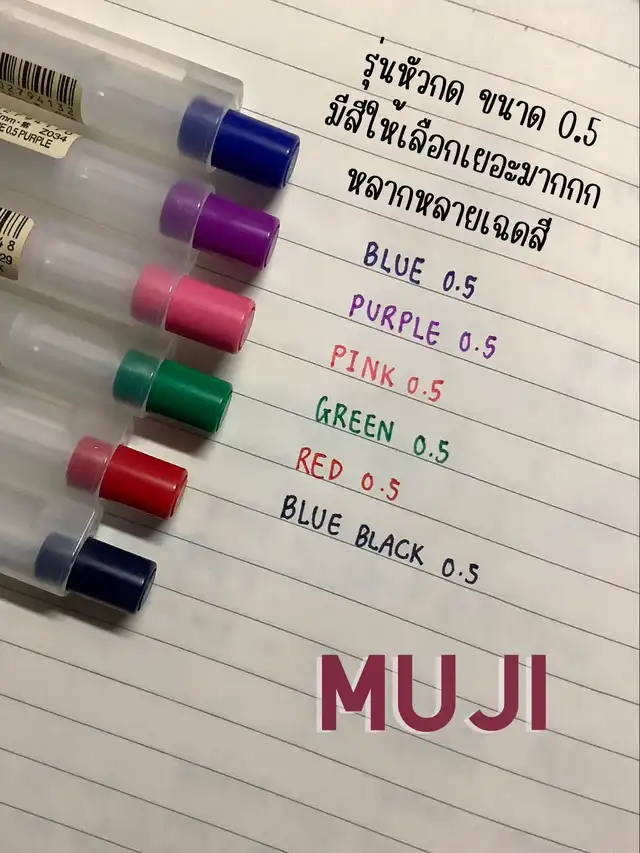 2794132
2034
E 0.5 PURPLE
48
29
รุ่นหัวกด ขนาด 0.5
มีสีให้เลือกเยอะมากกก
หลากหลายเฉดสี
BLUE 0.5
PURPLE 0.5
PINK 0.5
GREEN 0.5
RED 0.5
BLUE BLACK 0.5
MUJI